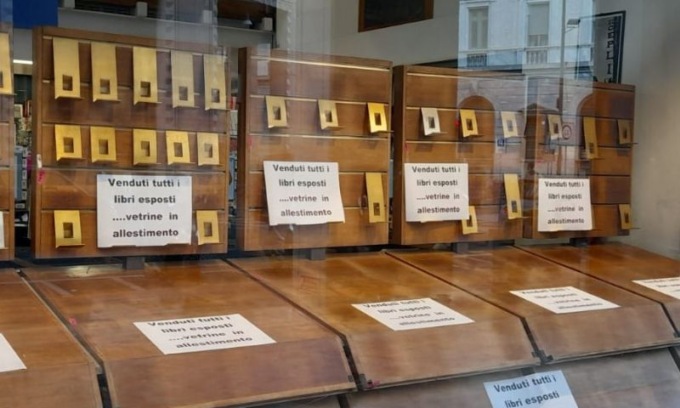 Venduti tutti i
libri esposti
....vetrine in
allestimento
Venduti tutti i
libri esposti
....vetrine in
allestimento
Venduti tutti i
libri esposti
....vetrine in
allestimento
Venduti tutti i
libri esposti
....vetrine in
allestimento
Venduti tutti i
libri esposti
....vetrine in
allestimento
Venduti tutti i
libri esposti
....vetrine in
allestimento
Venduti tutti i
libri esposti
....vetrine in
allestimento
Venduti
Venduti tutti i
libri esposti